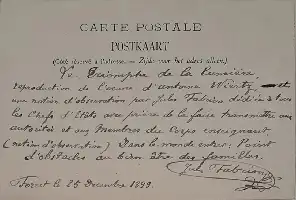 CARTE POSTALE
POSTKAART
(Côté réservé à l'adresse. — Zijde voor het adres alleen.)
Le Triomphe de la Lumière,
reproduction de l'œuvre d'Antoine Wiertz et
une notice d'observation par Jules Fabrion dédiée à tous
les Chefs d'Etats avec prière de la faire transmettre aux
autorités et aux Membres du Corps enseignant
(notion d'observation) Dans le monde entier: Point
d'obstacles au bien être des familles.
Jules Fabrion
Forret le 25 Décembre 1899.